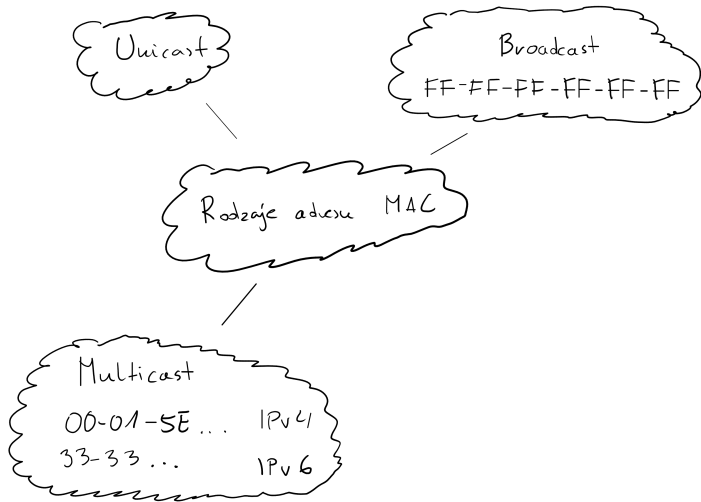 Unicast
Broadcast
FF-FF-FF-FF-FF-FF
Rodzaje adresu MAC
Multicast
00-01-5E... IPv4
33-33... IPv6